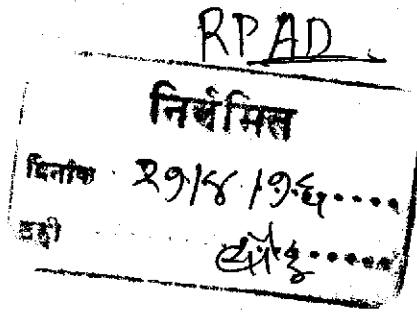 RPAD
निर्गमित
दिनांक २१/४/१६.....
सही